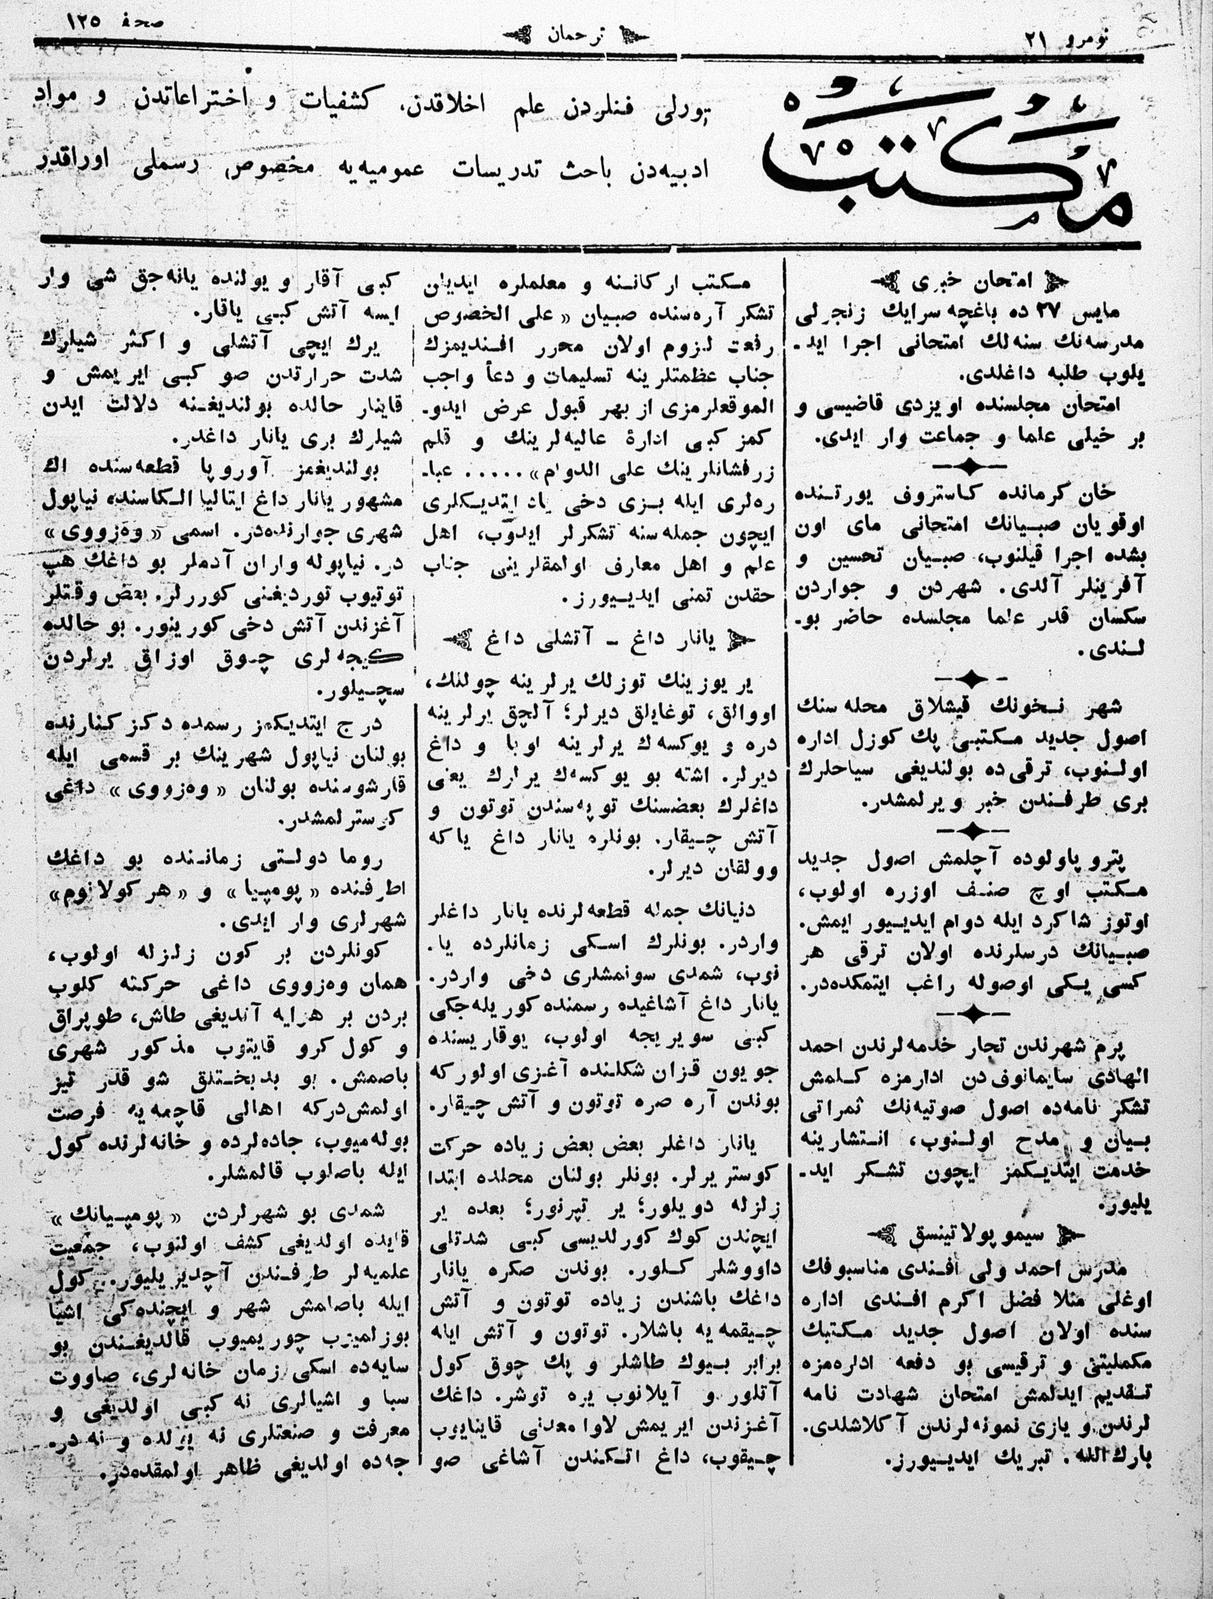 نومرو ٢١
ترجمان
صحفه ١٢٥
مكتب
تورلى فنلردن علم اخلاقدن، كشفيات و اختراعاتدن و مواد
ادبيه‌دن باحث تدريسات عموميه‌يه مخصوص رسملى اوراقدر
امتحان خبرى
مايس ٢٧ ده باغچه سرايك زنجرلى
مدرسه‌نك سنه‌لك امتحانى اجرا ايد-
يلوب طلبه داغلدى.
امتحان مجلسنده اويزدى قاضيسى و
بر خيلى علما و جماعت وار ايدى.
خان كرمانده كاستروف يورتنده
اوقويان صبيانك امتحانى ماى اون
بشده اجرا قيلنوب، صبيان تحسين و
آفرينلر آلدى. شهردن و جواردن
سكسان قدر علما مجلسده حاضر بو-
لندى.
شهر نخونك قيشلاق محله سنك
اصول جديد مكتبى پك كوزل اداره
اولنوب، ترقى ده بولنديغى سياحلرك
برى طرفندن خبر ويرلمشدر.
پترو پاولوده آچلمش اصول جديد
مكتب اوچ صنف اوزره اولوب،
اوتوز شاكرد ايله دوام ايديیور ايمش.
صبيانك درسلرنده اولان ترقى هر
كسى يكى اوصوله راغب ايتمكده‌در.
پرم شهرندن تجار خدمه‌لرندن احمد
الهادى سايمانوف‌دن ادارمزه كلمش
تشكر نامه‌ده اصول صوتيه‌نك ثمراتى
بيان و مدح اولنوب، انتشارينه
خدمت ايتديكمز ايچون تشكر ايد-
يليور.
سيمو پولاتينسق
مدرس احمد ولى افندى مناسبوفك
اوغلى منلا فضل اكرم افندى اداره
سنده اولان اصول جديد مكتبك
مكمليتى و ترقيسى بو دفعه ادارەمزه
تقديم ايدلمش امتحان شهادت نامه
لرندن و يازى نمونه‌لرندن آكلاشلدى.
بارك‌الله. تبريك ايديیورز.
مكتب اركاننه و معلملره ايديان
تشكر آره‌سنده صبيان «على الخصوص
رفعت لزوم اولان محرر افنديمزك
جناب عظمتلرينه تسليمات و دعأ واجب
الموقعلرمزى از بهر قبول عرض ايدو-
كمز كبى ادارۀ عاليه‌لرينك و قلم
زرفشانلرينك على الدوام»..... عبا-
ره‌لرى ايله بزى دخى ياد ايتديكلرى
ايچون جمله‌سنه تشكرلر ايدوب، اهل
علم و اهل معارف اولمقلرينى جناب
حقدن تمنى ايديیورز.
يانار داغ - آتشلى داغ
ير يوزينك توزلك يرلرينه چولنك،
اووالق، توغايلق ديرلر؛ آلچق يرلرينه
دره و يوكسه‌ك يرلرينه اوبا و داغ
ديرلر. اشته بو يوكسه‌ك يرلرك يعنى
داغلرك بعضسنك توپه‌سندن توتون و
آتش چيقار. بونلره يانار داغ ياكه
وولقان ديرلر.
دنيانك جمله قطعه‌لرنده يانار داغلر
واردر. بونلرك اسكى زمانلرده يا.
نوب، شمدى سونمشلرى دخى واردر.
يانار داغ آشاغيده رسمنده كوريله‌جكى
كبى سويريجه اولوب، يوقاريسنده
جويون قزان شكلنده آغزى اولوركه
بوندن آره صره توتون و آتش چيقار.
يانار داغلر بعض بعض زياده حركت
كوستريرلر. بونلر بولنان محلده ابتدا
زلزله دويلور؛ ير تپرنور؛ بعده ير
ايچندن كوك كورلديسى كبى شدتلى
داووشلر كلور. بوندن صكره يانار
داغك باشندن زياده توتون و آتش
چيقمه‌يه باشلار. توتون و آتش ايله
برابر بيوك طاشلر و پك چوق كول
آتلور و آيلانوب يره توشر. داغك
آغزندن ايريمش لاوا معدنى قاينايوب
چيقوب، داغ اتكندن آشاغى صو
كبى آقار و يولنده يانه‌جق شى وار
ايسه آتش كبى ياقار.
يرك ايچى آتشلى و اكثر شيلرك
شدت حرارتدن صو كبى ايريمش و
قاينار حالده بولنديغنه دلالت ايدن
شيلرك برى يانار داغدر.
بولنديغمز آوروپا قطعه‌سنده اك
مشهور يانار داغ ايتاليا الكاسنده نياپول
شهرى جوارنده‌در. اسمى «وه‌زووى»
در. نياپوله واران آدملر بو داغك هپ
توتيوب تورديغنى كوررلر. بعض وقتلر
آغزندن آتش دخى كورينور. بو حالده
كيجه‌لرى چوق اوزاق يرلردن
سچيلور.
درج ايتديكمز رسمده دكز كنارنده
بولنان نياپول شهرينك بر قسمى ايله
قارشوسنده بولنان «وه‌زووى» داغى
كوسترلمشدر.
روما دولتى زماننده بو داغك
اطرفنده «پومپيا» و «هركولانوم»
شهرلرى وار ايدى.
كونلردن بر كون زلزله اولوب،
همان وه‌زووى داغى حركته كلوب
بردن بر هرايه آنديغى طاش، طوپراق
و كول كرو قايتوب مذكور شهرى
باصمش. بو بدبختلق شو قدر تيز
اولمش‌دركه اهالى قاچمه‌يه فرصت
بوله‌ميوب، جاده‌لرده و خانه‌لرنده كول
ايله باصلوب قالمشلر.
شمدى بو شهرلردن «پومپيانك»
قايده اولديغى كشف اولنوب، جمعيت
علميه‌لر طرفندن آچديريليور. كول
ايله باصلمش شهر و ايچنده‌كى اشيا
بوزلميوب چوريميوب قالديغندن بو
سايه‌ده اسكى زمان خانه‌لرى، صاووت
سبا و اشيالرى نه كبى اولديغى و
معرفت و صنعتلرى نه يولده و نه در-
جه‌ده اولديغى ظاهر اولمقده‌در.